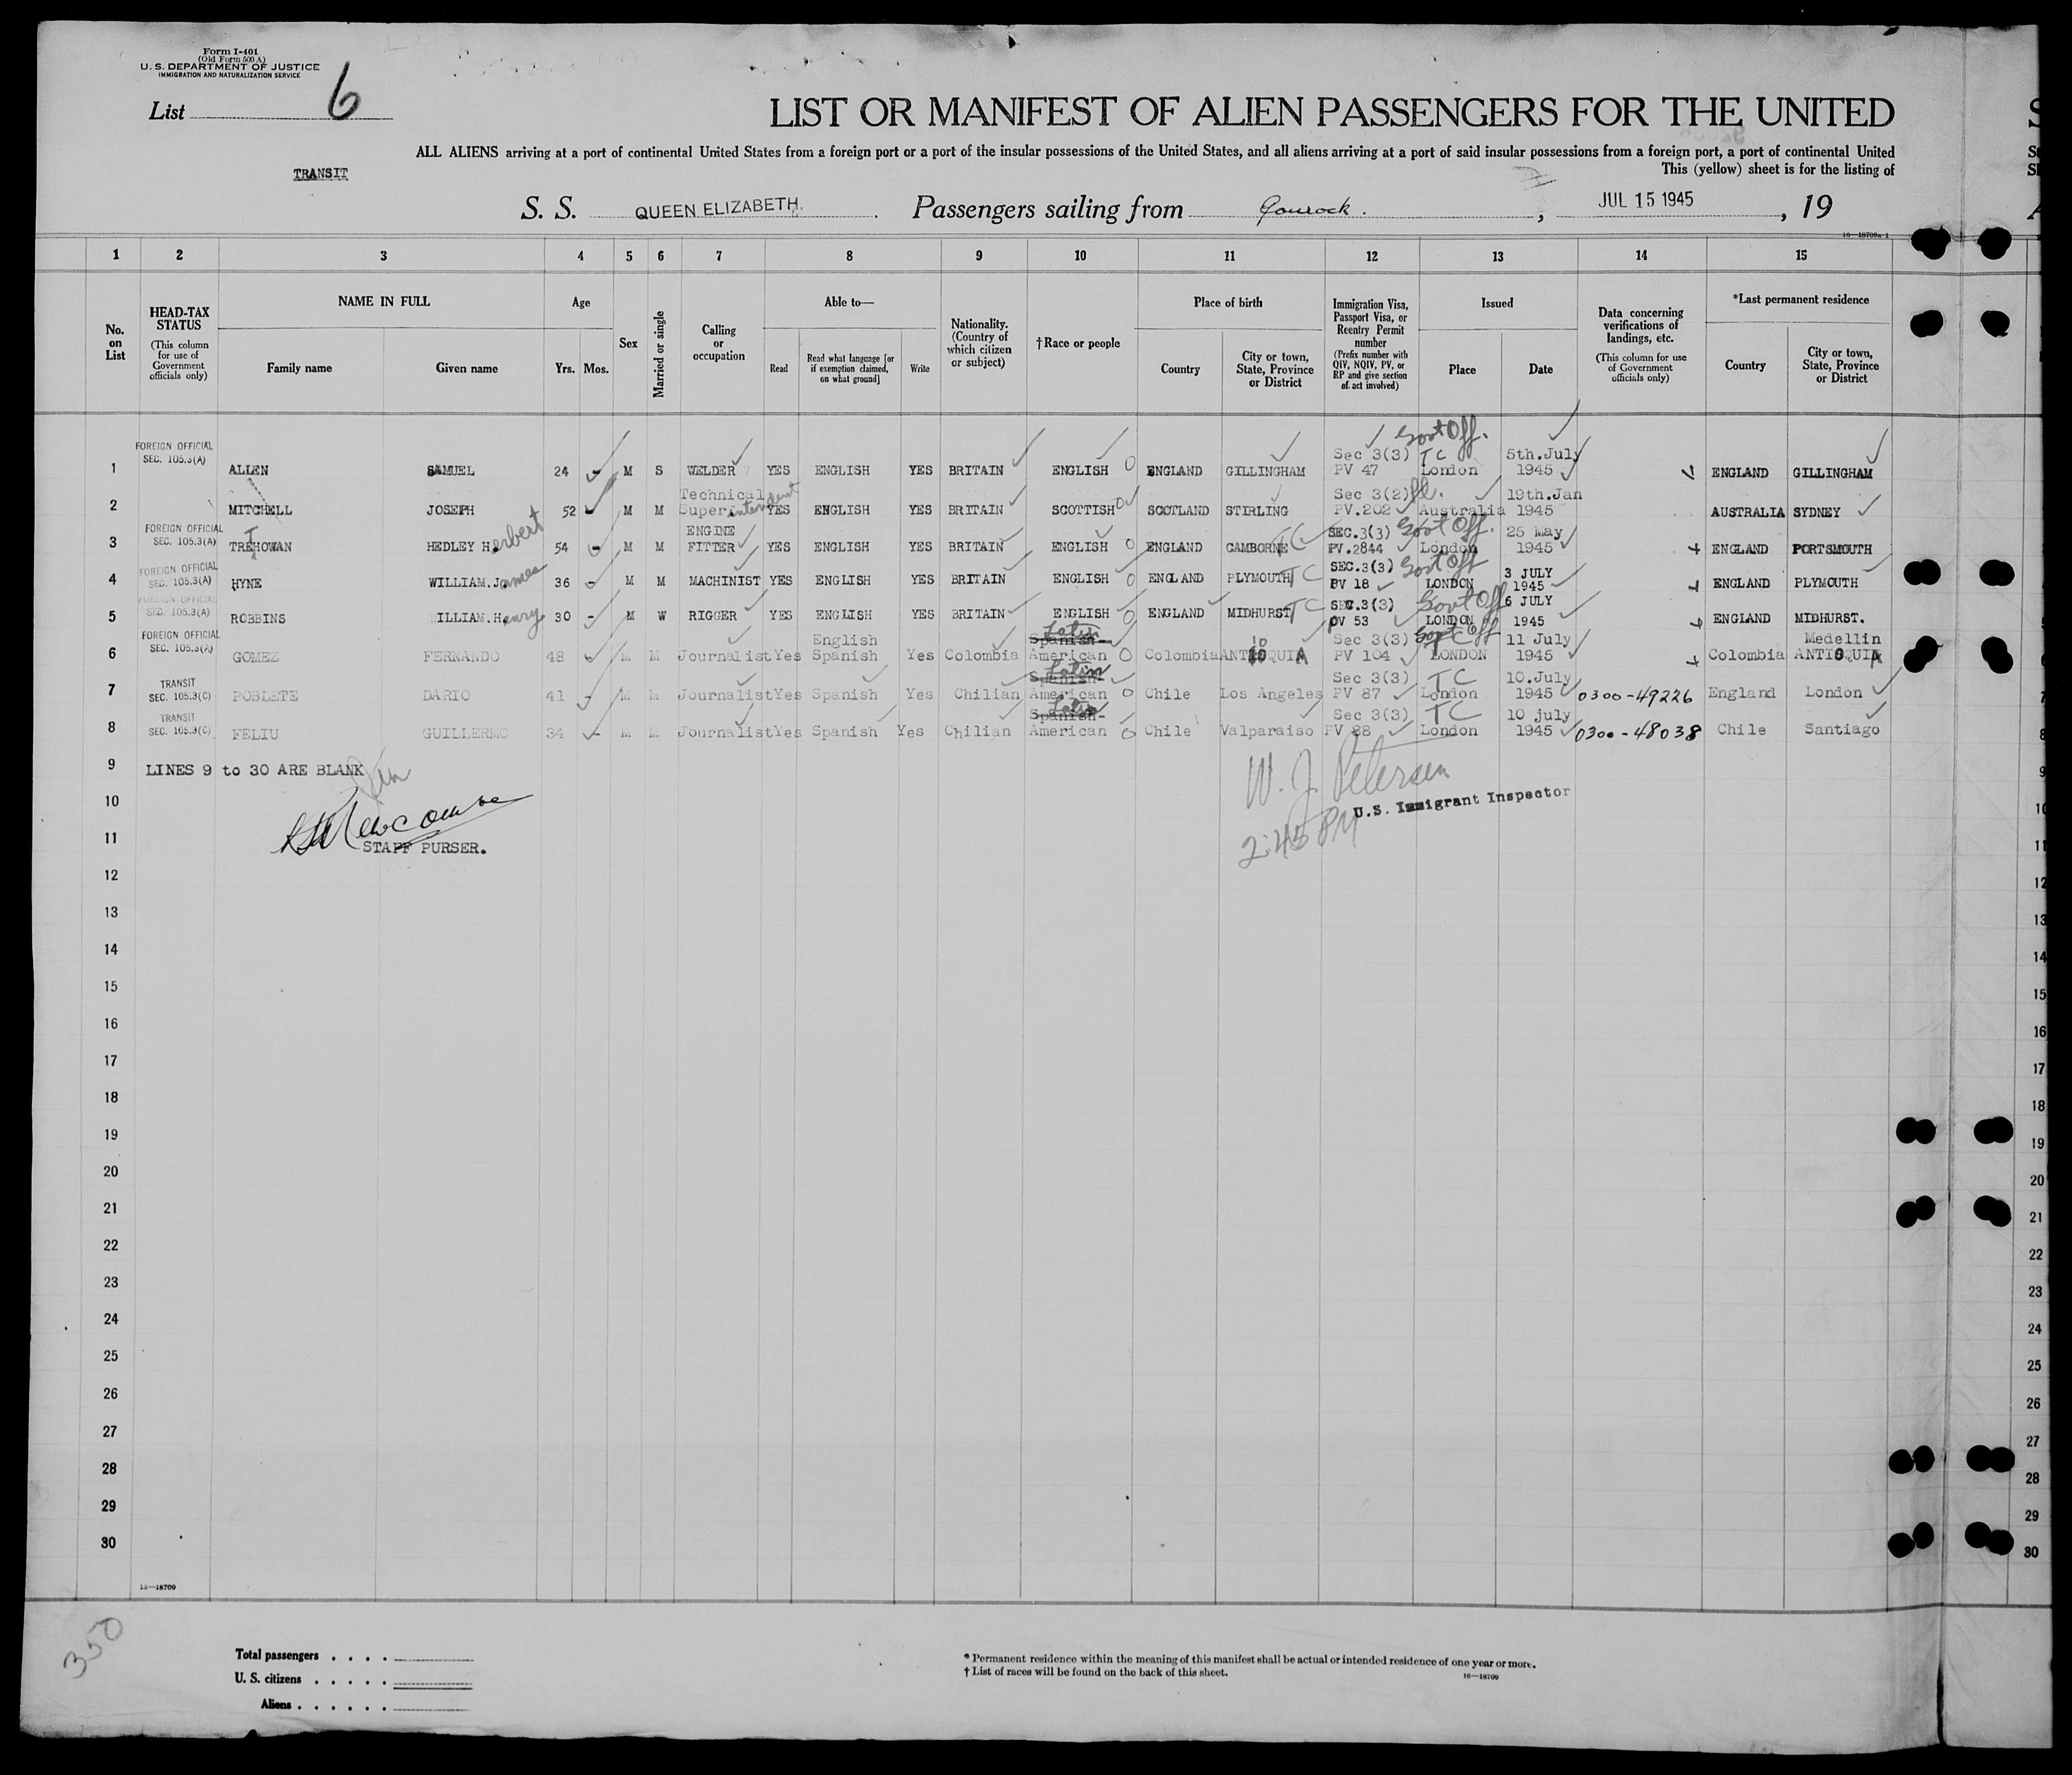 Form I-401
(Old Form 500 A)
U. S. DEPARTMENT OF JUSTICE
IMMIGRATION AND NATURALIZATION SERVICE
List 6
LIST OR MANIFEST OF ALIEN PASSENGERS FOR THE UNITED
ALL ALIENS arriving at a port of continental United States from a foreign port or a port of the insular possessions of the United States, and all aliens arriving at a port of said insular possessions from a foreign port, a port of continental United
This (yellow) sheet is for the listing of
TRANSIT
S. S. QUEEN ELIZABETH. Passengers sailing from Gourock. , JUL 15 1945 , 19
16—18709a-1
1 2 3 4 5 6 7 8 9 10 11 12 13 14 15
No. on List
HEAD-TAX STATUS (This column for use of Government officials only)
NAME IN FULL Family name Given name
Age Yrs. Mos.
Sex
Married or single
Calling or occupation
Able to— Read Read what language [or if exemption claimed, on what ground] Write
Nationality. (Country of which citizen or subject)
†Race or people
Place of birth Country City or town, State, Province or District
Immigration Visa, Passport Visa, or Reentry Permit number (Prefix number with QIV, NQIV, PV, or RP and give section of act involved)
Issued Place Date
Data concerning verifications of landings, etc. (This column for use of Government officials only)
*Last permanent residence Country City or town, State, Province or District
FOREIGN OFFICIAL Govt Off.
SEC. 105.3(A) Sec 3(3) TC 5th.July
1 ALLEN SAMUEL 24 - M S WELDER YES ENGLISH YES BRITAIN ENGLISH ENGLAND GILLINGHAM PV 47 London 1945 ENGLAND GILLINGHAM
Technical Sec 3(2) 19th.Jan
2 MITCHELL JOSEPH 52 M M Superintendent YES ENGLISH YES BRITAIN SCOTTISH SCOTLAND STIRLING PV.202 Australia 1945 AUSTRALIA SYDNEY
FOREIGN OFFICIAL ENGINE SEC.3(3) Govt Off. 25 May
3 SEC. 105.3(A) TREHOWAN HEDLEY Herbert 54 - M M FITTER YES ENGLISH YES BRITAIN ENGLISH ENGLAND CAMBORNE TC PV.2844 London 1945 ENGLAND PORTSMOUTH
FOREIGN OFFICIAL SEC.3(3) Govt Off 3 JULY
4 SEC. 105.3(A) HYNE WILLIAM.James 36 - M M MACHINIST YES ENGLISH YES BRITAIN ENGLISH ENGLAND PLYMOUTH TC PV 18 LONDON 1945 ENGLAND PLYMOUTH
FOREIGN OFFICIAL SEC.3(3) Govt Off 6 JULY
5 SEC. 105.3(A) ROBBINS ILLIAM.Henry 30 - M W RIGGER YES ENGLISH YES BRITAIN ENGLISH ENGLAND MIDHURST TC PV 53 LONDON 1945 ENGLAND MIDHURST.
FOREIGN OFFICIAL English Spanish- Latin Sec 3(3) Govt Off 11 July Medellin
6 SEC. 105.3(A) GOMEZ FERNANDO 48 M M Journalist Yes Spanish Yes Colombia American Colombia ANTIOQUIA PV 104 LONDON 1945 Colombia ANTIOQUIA
TRANSIT Spanish- Latin Sec 3(3) TC 10.July
7 SEC. 105.3(C) POBLETE DARIO 41 - M M Journalist Yes Spanish Yes Chilian American Chile Los Angeles PV 87 London 1945 0300-49226 England London
TRANSIT Spanish- Latin Sec 3(3) TC 10 july
8 SEC. 105.3(C) FELIU GUILLERMO 34 - M M Journalist Yes Spanish Yes Chilian American Chile Valparaiso PV 88 London 1945 0300-48038 Chile Santiago
9 LINES 9 to 30 ARE BLANK
W. J. Petersen
U.S. Immigrant Inspector
2:45 PM
10
Newcombe
11 STAFF PURSER.
12
13
14
15
16
17
18
19
20
21
22
23
24
25
26
27
28
29
30
16—18709
350
Total passengers . . . .
U. S. citizens . . . . .
Aliens . . . . . .
* Permanent residence within the meaning of this manifest shall be actual or intended residence of one year or more.
† List of races will be found on the back of this sheet.
16—18709